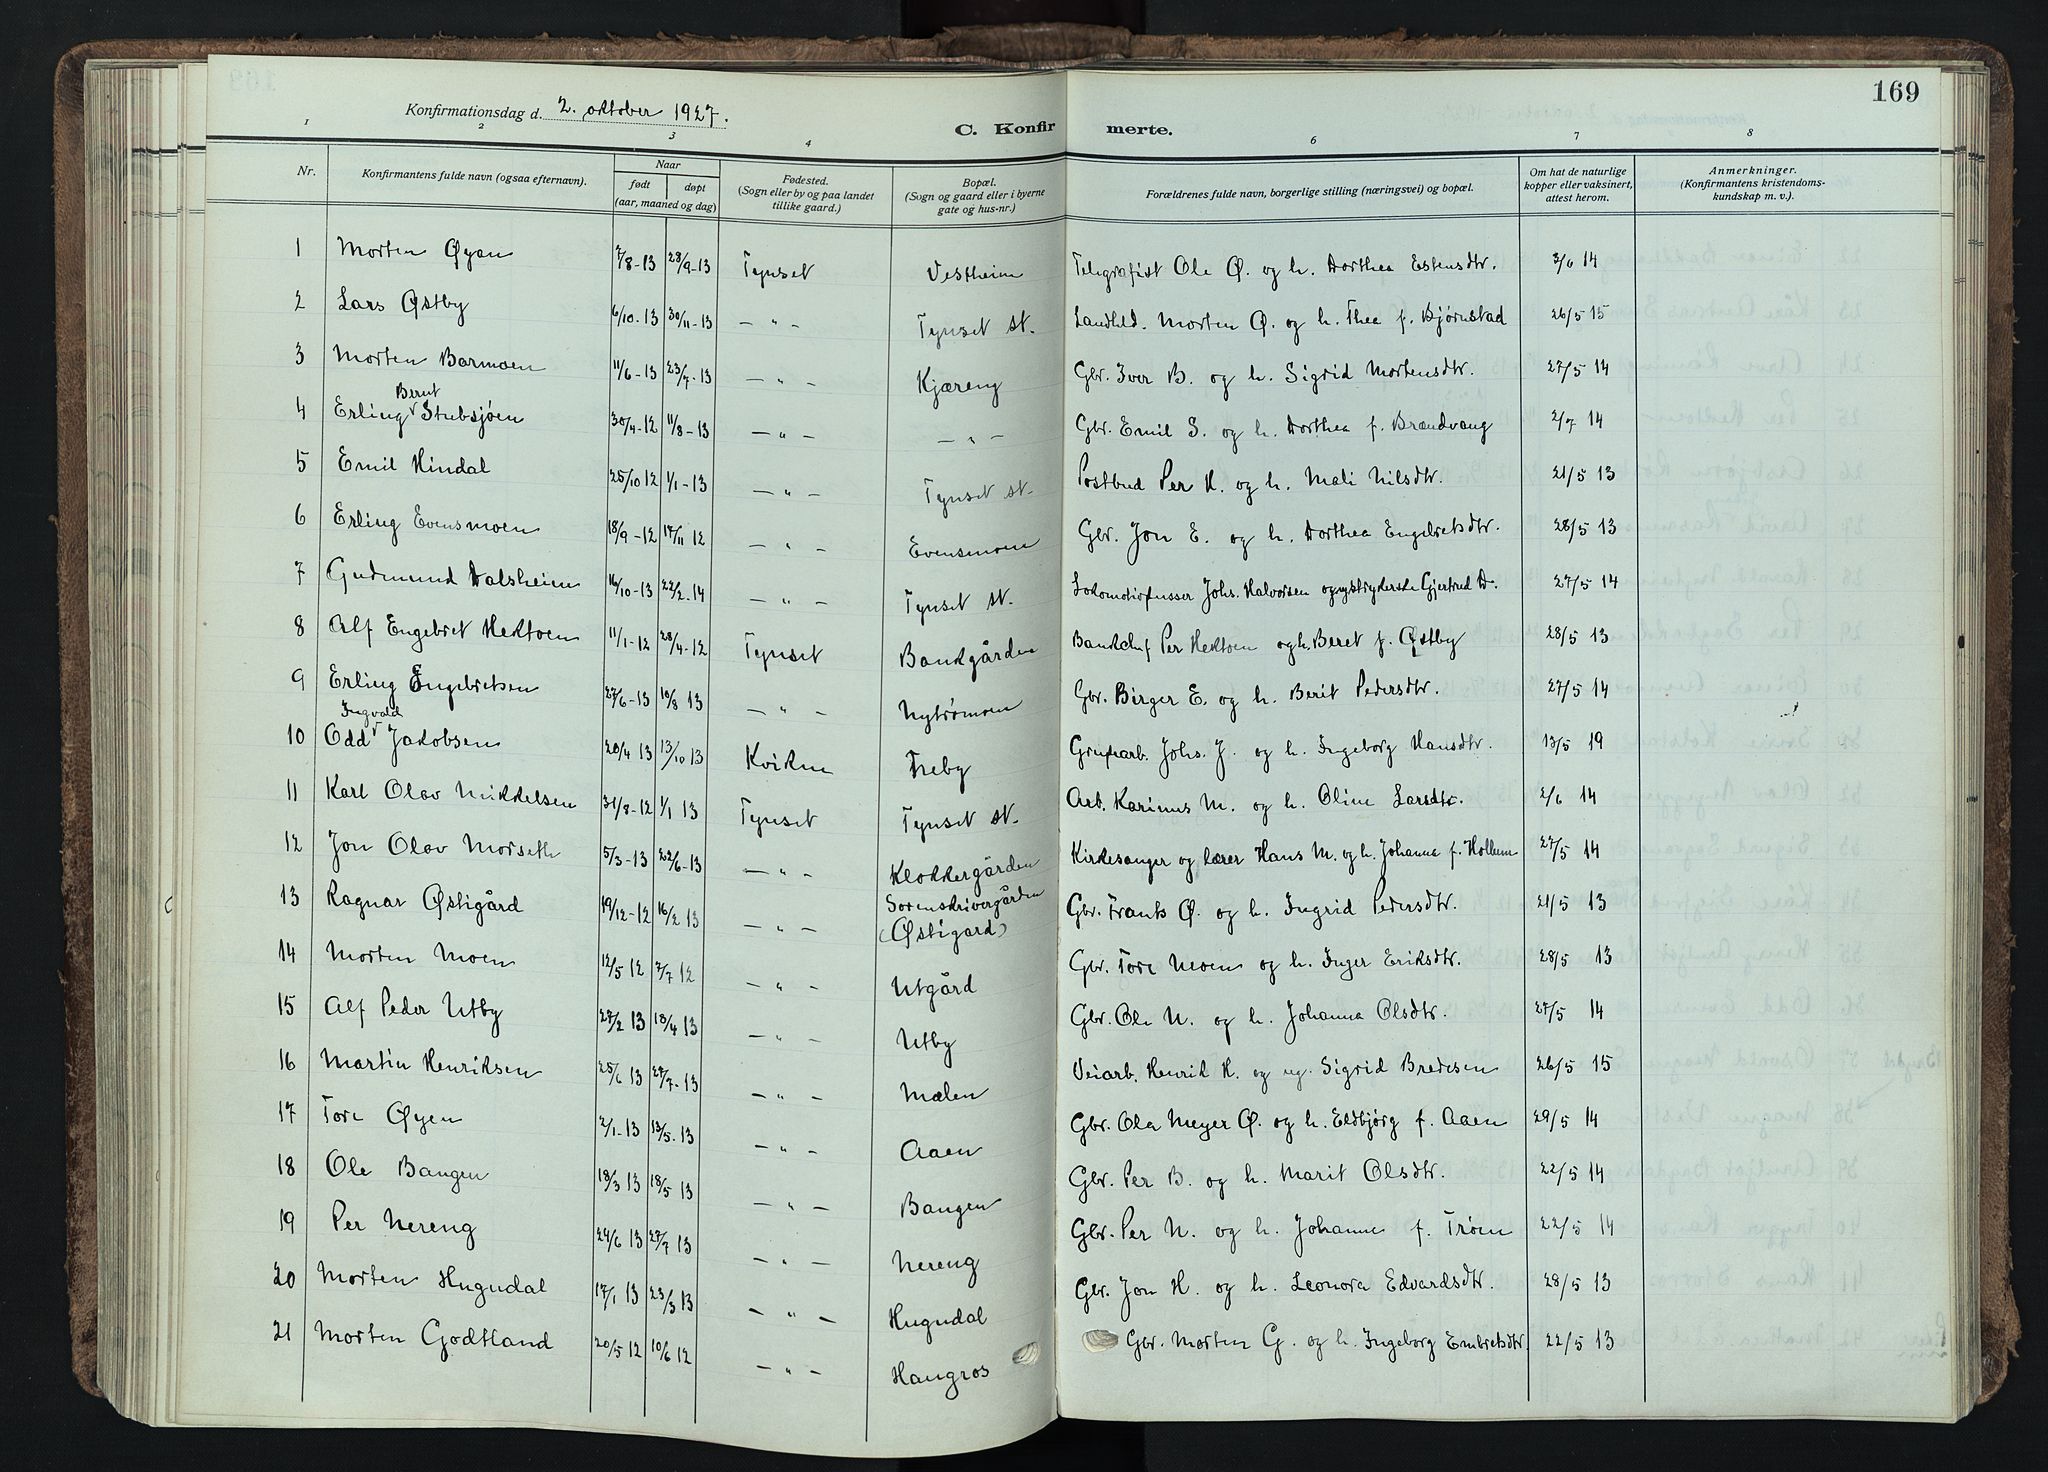 169
Konfirmationsdag d. 2. oktober 1927.
C. Konfirmerte.
1 2 3 4 6 7 8
Nr. Konfirmantens fulde navn (ogsaa efternavn). Naar født døpt (aar, maaned og dag) Fødested. (Sogn eller by og paa landet tillike gaard.) Bopæl. (Sogn og gaard eller i byerne gate og hus-nr.) Forældrenes fulde navn, borgerlige stilling (næringsvei) og bopæl. Om hat de naturlige kopper eller vaksinert, attest herom. Anmerkninger. (Konfirmantens kristendoms-kundskap m. v.).
1 Morten Øyan 7/8-13 28/9-13 Tynset Vestheim Telegrafist Ole Ø. og h. Dorthea Estensdtr. 3/6 14
2 Lars Østby 6/10-13 30/11-13 — " — Tynset st. Landhld. Morten Ø. og h. Thea f. Bjørnstad 26/5 15
3 Morten Barmoen 11/6-13 23/7-13 — " — Kjæreng Gbr. Iver B. og h. Sigrid Mortensdtr. 27/5 14
4 Erling Bernt Stubsjøen 30/4-12 11/8-13 — " — — " — Gbr. Emil S. og h. Dorthea f. Brandvang 2/7 14
5 Emil Hindal 25/10 12 1/1-13 — " — Tynset st. Postbud Per H. og h. Mali Nilsdtr. 21/5 13
6 Erling Evensmoen 18/9-12 17/11 12 — " — Evensmoen Gbr. Jon E. og h. Dorthea Engebretsdtr. 28/5 13
7 Gudmund Dalsheim 16/10-13 22/2-14 — " — Tynset st. Lokomotivpusser Johs. Halvorsen og nystrykerske Gjertrud D. 27/5 14
8 Alf Engebret Hektoen 11/1-12 28/4-12 Tynset Bankgården Bankchef Per Hektoen og h. Beret f. Østby 28/5 13
9 Erling Engebretsen 27/6-13 10/8 13 — " — Nytrømoen Gbr. Birger E. og h. Berit Pedersdtr. 27/5 14
10 Odd Ingvald Jakobsen 20/4 13 13/10 13 Kvikne Treby Grubearb. Johs. J. og h. Ingeborg Hansdtr. 13/5 19
11 Karl Olav Mikkelsen 31/8-12 1/1 13 Tynset Tynset st. Arb. Karinus M. og h. Oline Larsdtr. 2/6 14
12 Jon Olav Morseth 5/3-13 22/6-13 — " — Klokkergården Kirkesanger og lærer Hans M. og h. Johanna f. Hollum 27/5 14
13 Ragnar Østigård 19/12-12 16/2 13 — " — Sorenskrivergården (Østigard) Gbr. Frants Ø. og h. Ingrid Pedersdtr. 21/5 13
14 Morten Moen 12/5 12 7/7 12 — " — Utgård Gbr. Tore Moen og h. Inger Eriksdtr. 28/5 13
15 Alf Peder Utby 27/2 13 13/4 13 — " — Utby Gbr. Ole U. og h. Johanna Olsdtr. 27/5 14
16 Martin Henriksen 25/6 13 27/7-13 — " — Mælen Veiarb. Henrik H. og ug. Sigrid Bredesen 26/5 15
17 Tore Øyen 2/1-13 13/5-13 — " — Aaen Gbr. Ola Meyer Ø. og h. Eldbjørg f. Aaen 29/5 14
18 Ole Bangen 13/3 13 18/5 13 — " — Bangen Gbr. Per B. og h. Marit Olsdtr. 22/5 14
19 Per Nereng 24/6 13 27/7 13 — " — Nereng Gbr. Per N. og h. Johanne f. Trøen 22/5 14
20 Morten Hugudal 17/1 13 23/3 13 — " — Hugudal Gbr. Jon H. og h. Leonora Edvardsdtr. 28/5 13
21 Morten Godtland 20/5 12 10/6 12 — " — Haugros Gbr. Morten G. og h. Ingeborg Embretsdtr. 22/5 13